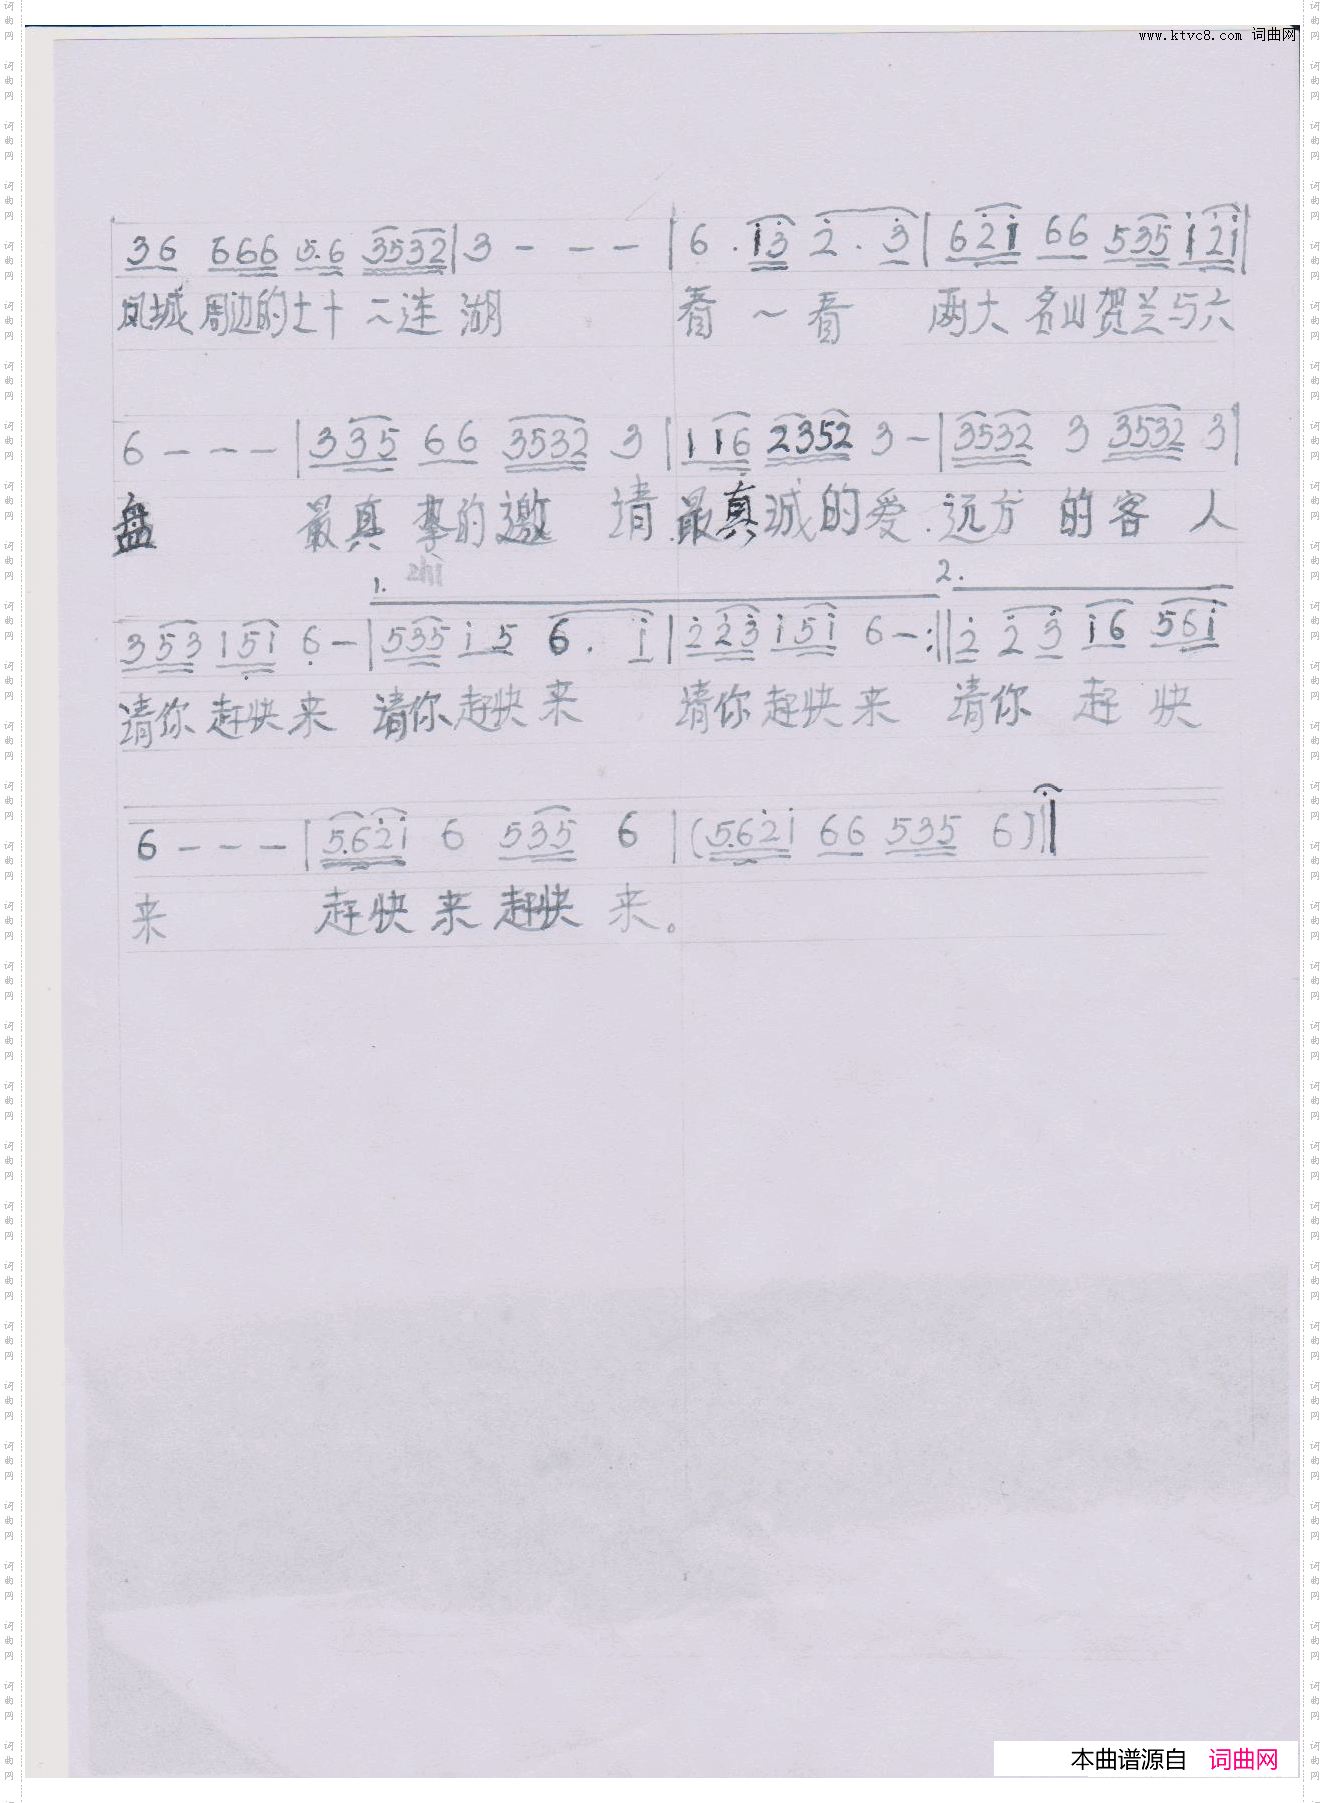 www.ktvc8.com 词曲网
36 666 5.6 3532 | 3 - - - | 6 . i3 2 . 3 | 62i 66 535 i2i |
凤城 周边的七十二连湖 看一看 两大名山贺兰与六
6 - - - | 335 66 3532 3 | 116 2352 3 - | 3532 3 3532 3 |
盘 最真挚的邀请.最真诚的爱.远方的客人
zhi
1. 2.
353 151 6 - | 535 i5 6 . i | 223 i5i 6 - :|| 2 2 3 i6 56i
请你赶快来 请你赶快来 请你赶快来 请你赶快
6 - - - | 562i 6 535 6 | (562i 66 535 6) ||
来 赶快来赶快来。
本曲谱源自 词曲网